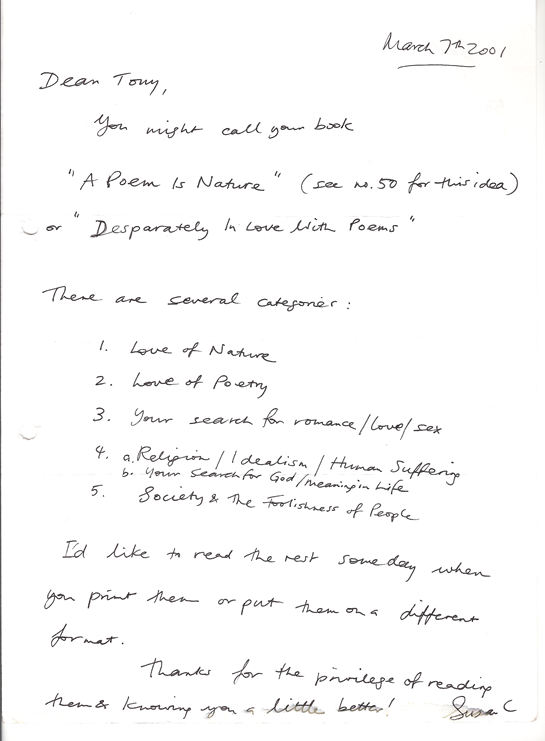 March 7th 2001
Dear Tony,
You might call your book
"A Poem Is Nature" (see no.50 for this idea)
or "Desparately In Love With Poems"
There are several categories:
1. Love of Nature
2. Love of Poetry
3. Your search for romance/love/sex
4. a. Religion/Idealism/Human Suffering
b. Your Search for God/meaning in Life
5. Society & The Foolishness of People
I'd like to read the rest someday when
you print them or put them on a different
format.
Thanks for the privilege of reading
them & knowing you a little better! Susan C